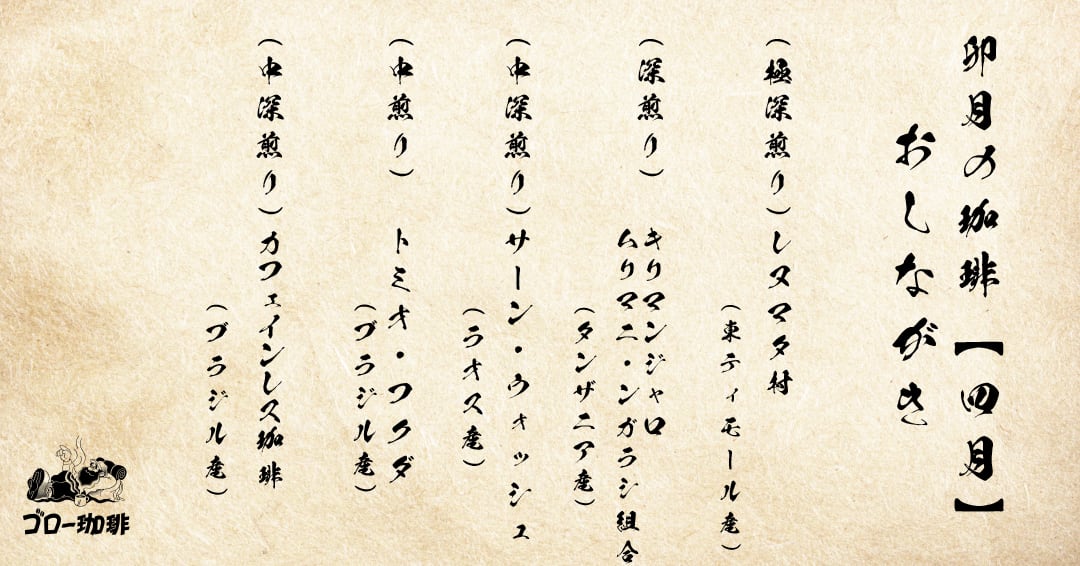 卯月の珈琲【四月】
おしながき
(極深煎り)レヌマタ村
(東ティモール産)
(深煎り) キリマンジャロ
ムリマニ・ンガラシ組合
(タンザニア産)
(中深煎り)サーン・ウォッシュ
(ラオス産)
(中煎り) トミオ・フクダ
(ブラジル産)
(中深煎り)カフェインレス珈琲
(ブラジル産)
ゴロー珈琲